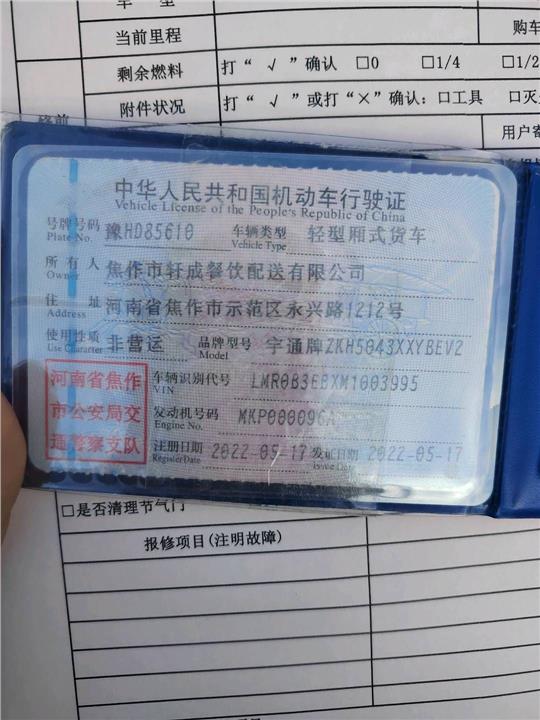 车 型
当前里程
购车
剩余燃料 打“ √ ”确认 □0 □1/4 □1/2
附件状况 打“ √ ”或打“×”确认：□工具 □灭
用户寄
中华人民共和国机动车行驶证
Vehicle License of the People's Republic of China
号牌号码 豫HD85610 车辆类型 轻型厢式货车
Plate No. Vehicle Type
所有人 焦作市轩成餐饮配送有限公司
Owner
住址 河南省焦作市示范区永兴路1212号
Address
使用性质 非营运 品牌型号 宇通牌ZKH5043XXYBEV2
Use Character Model
河南省焦作
市公安局交
通警察支队
车辆识别代号 LMR0B3EBXM1003995
VIN
发动机号码 MKP000096A
Engine No.
注册日期 2022-05-17 发证日期 2022-05-17
Register Date Issue Date
□是否清理节气门
报修项目(注明故障)